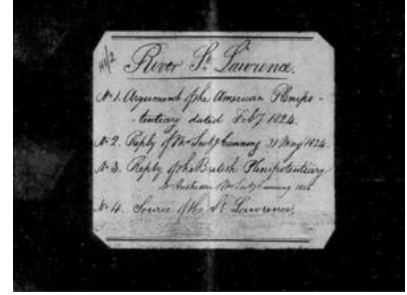 River St. Lawrence.
No 1. Argument of the American Plenipo-
-tentiary dated Feby 1824.
No 2. Reply of Mr Secty Canning 31 May 1824.
No 3. Reply of the British Plenipotentiary
Mr Secty Canning
No 4. Source of the St Lawrence.